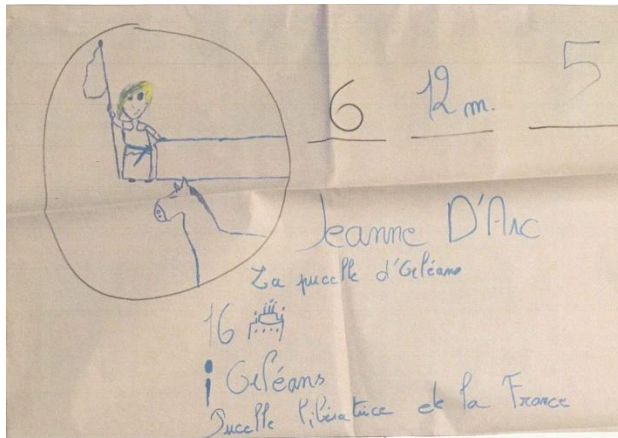 6 12 m. 5
Jeanne D'Arc
La pucelle d'Orléans
16
Orléans
Pucelle libératrice de la France